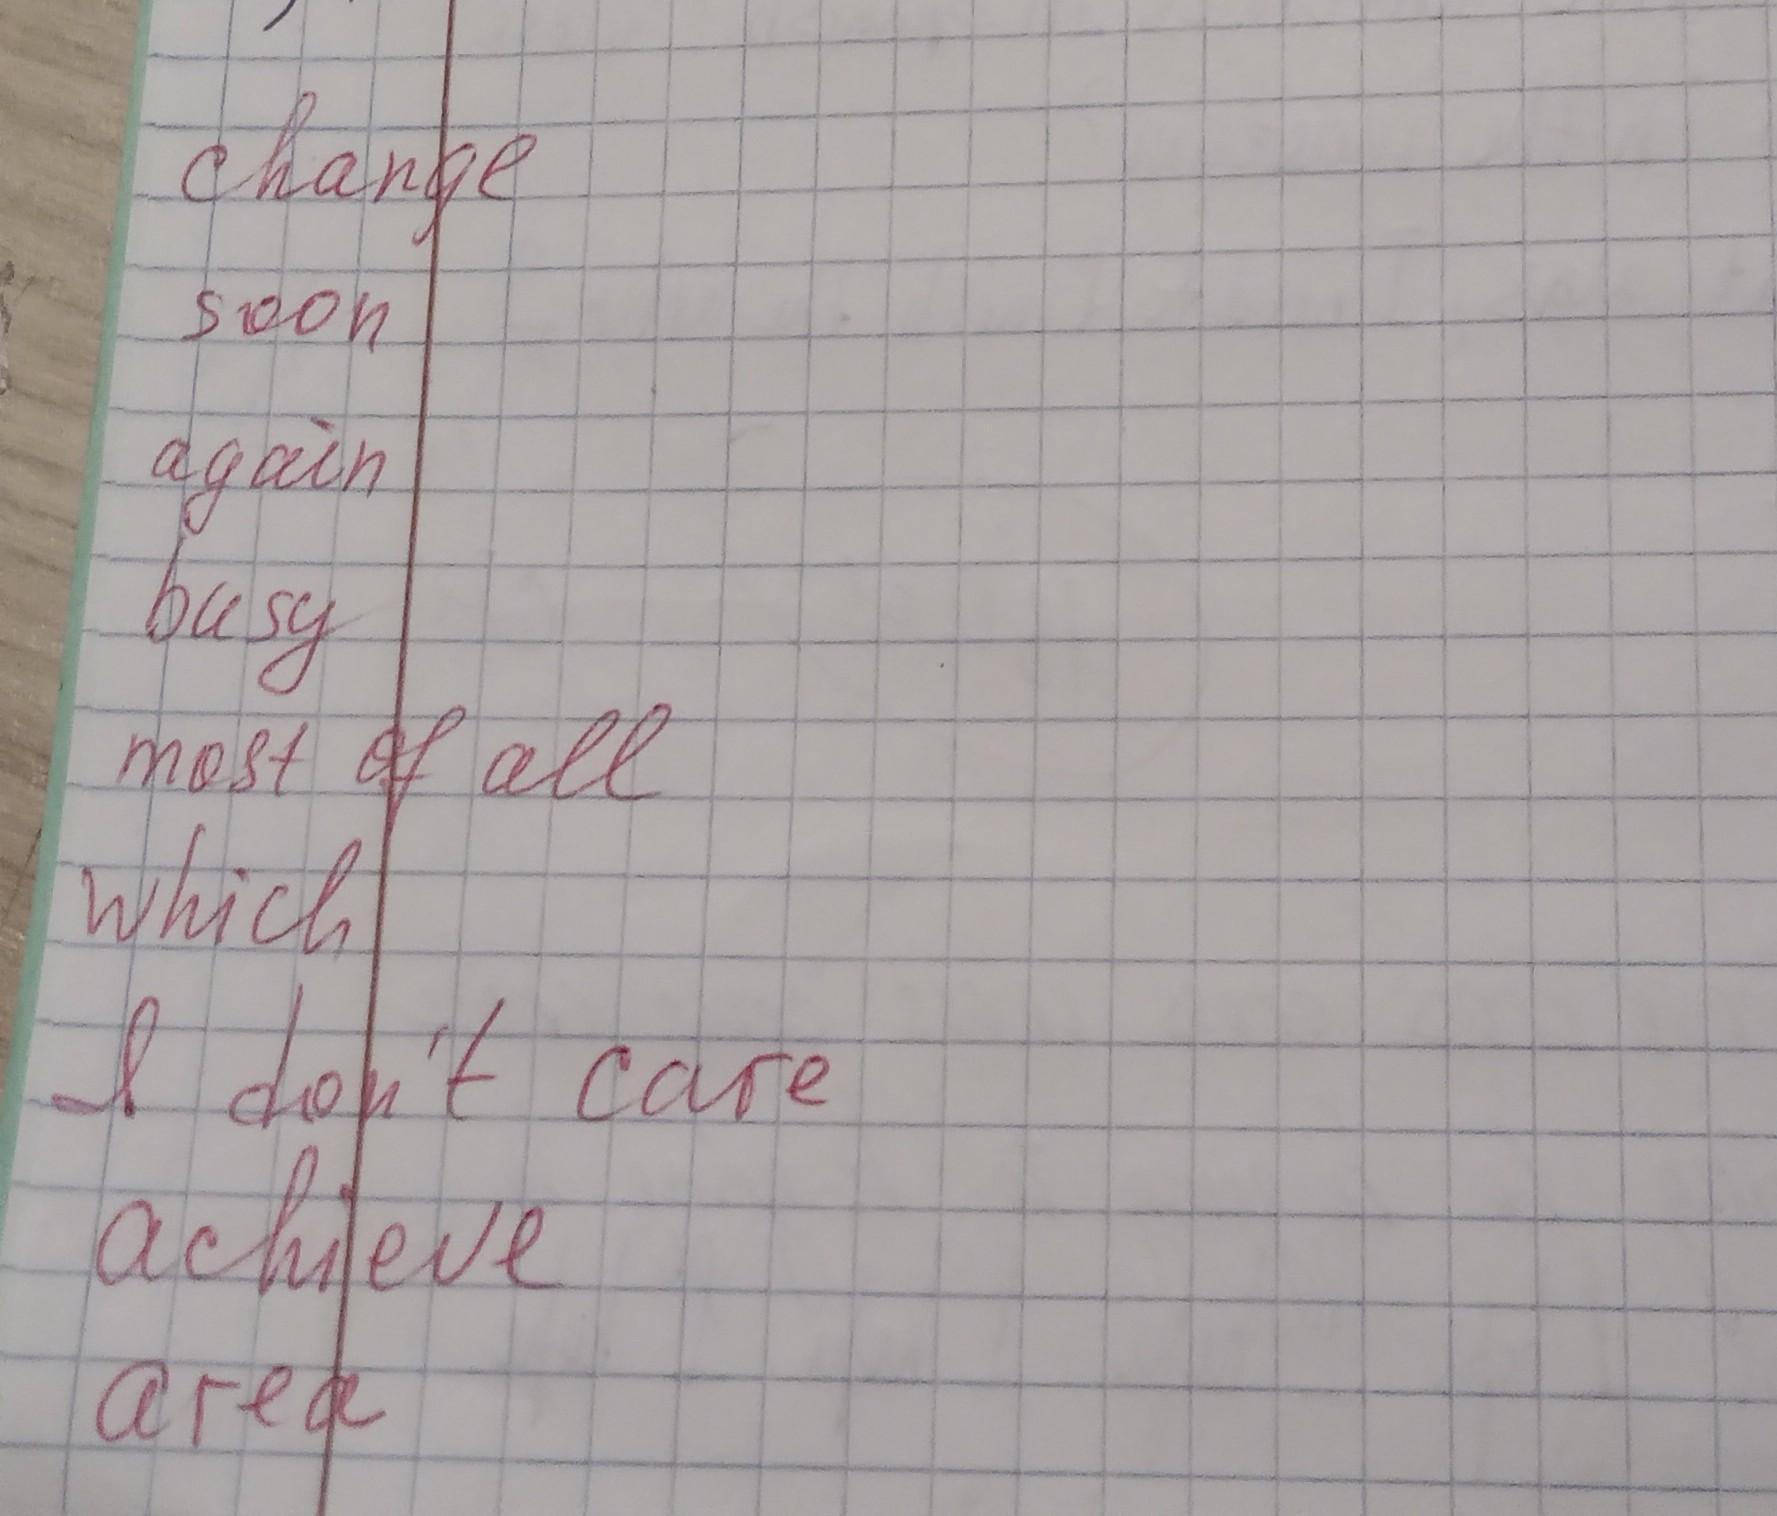 change
soon
again
busy
most of all
which
I don't care
achieve
area